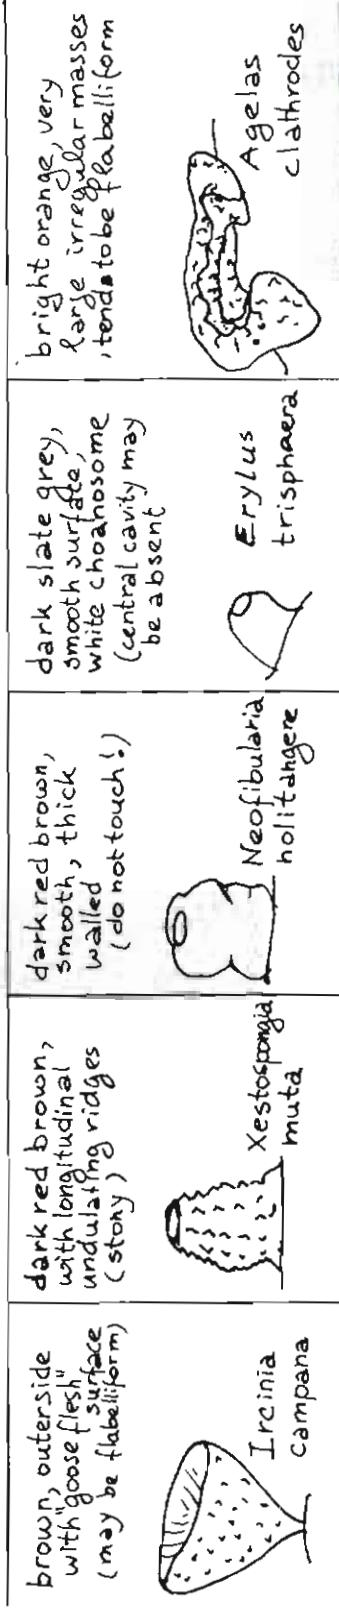 brown, outerside
with "goose flesh"
surface
(may be flabelliform)
Ircinia
campana
dark red brown,
with longitudinal
undulating ridges
(stony)
Xestospongia
muta
dark red brown,
smooth, thick
walled
(do not touch!)
Neofibularia
nolitangere
dark slate grey,
smooth surface,
white choanosome
(central cavity may
be absent
Erylus
trisphaera
bright orange, very
large irregular masses
, tends to be flabelliform
Agelas
clathrodes